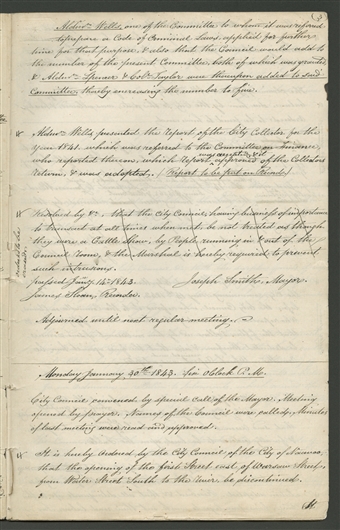 Alderⁿ Wells, one of the Committee to whom it was referred
to prepare a Code of Criminal Laws, applied for further
time for that purpose, & also that the Council would add to
the number of the present Committee, both of which was granted
& Alderⁿ Spencer & Coⁿ Taylor were thereupon added to said
Committee, thereby encreasing the number to five.
Alderⁿ Wells, presented the report of the City Collector for the
year 1841. which was referred to the Committee on Finance,
was accepted, &
who reported thereon, which report approved of the Collectors
return, & was adopted. (Report to be put on Records.)
Resolved by &c. that the City Council, having business of importance
to transact at all times when met, be not treated as though
they were a Cattle Show, by People running in & out of the
Council Room, & the Marshal is hereby required to prevent
such intrusions.
passed Jany. 14th 1843. Joseph Smith, Mayor
James Sloan, Recorder
Adjourned until next regular meeting.
Monday January 30th 1843. Six O'clock P.M.
City Council convened by special call of the Mayor. Meeting
opened by prayer. Names of the Council were called, Minutes
of last meeting were read and approved.
It is hereby ordered by the City Council of the City of Nauvoo,
that the opening of the first Street east of Warsaw Street,
from Water Street South to the river, be discontinued.